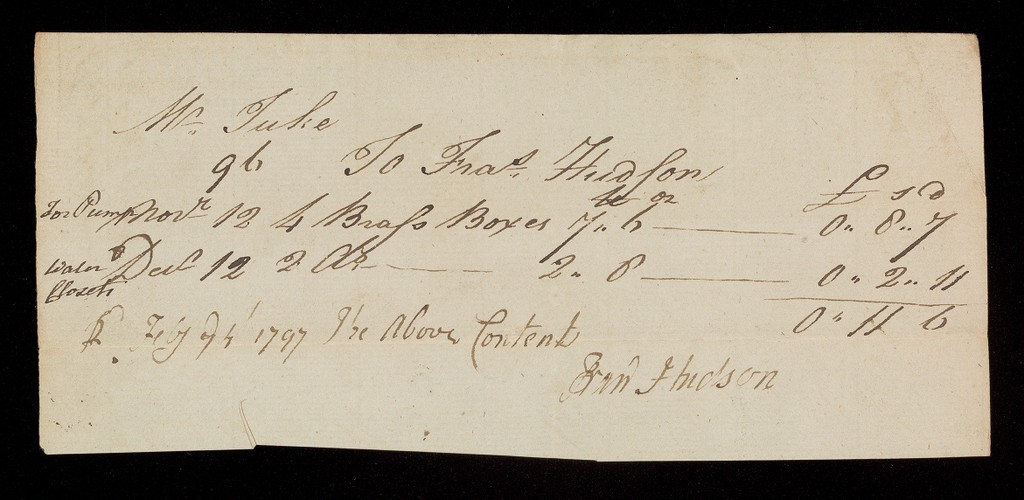 Mr. Tuke
96 To Fras. Hudson
lb oz
£ s d
For Pump Novr 12 4 Brass Boxes 7" 6 0" 8" 7
Water Closets Decr 12 2 Do 2" 8 0" 2" 11
0" 11 6
1797 The Above Contents
Hudson